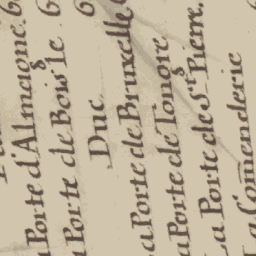 Porte d'Almaigne. 6
Porte de Bois le 6
Duc 6
La Porte de Bruxelle 6
La Porte de Tongre
La Porte de St. Pierre.
La Comenderie